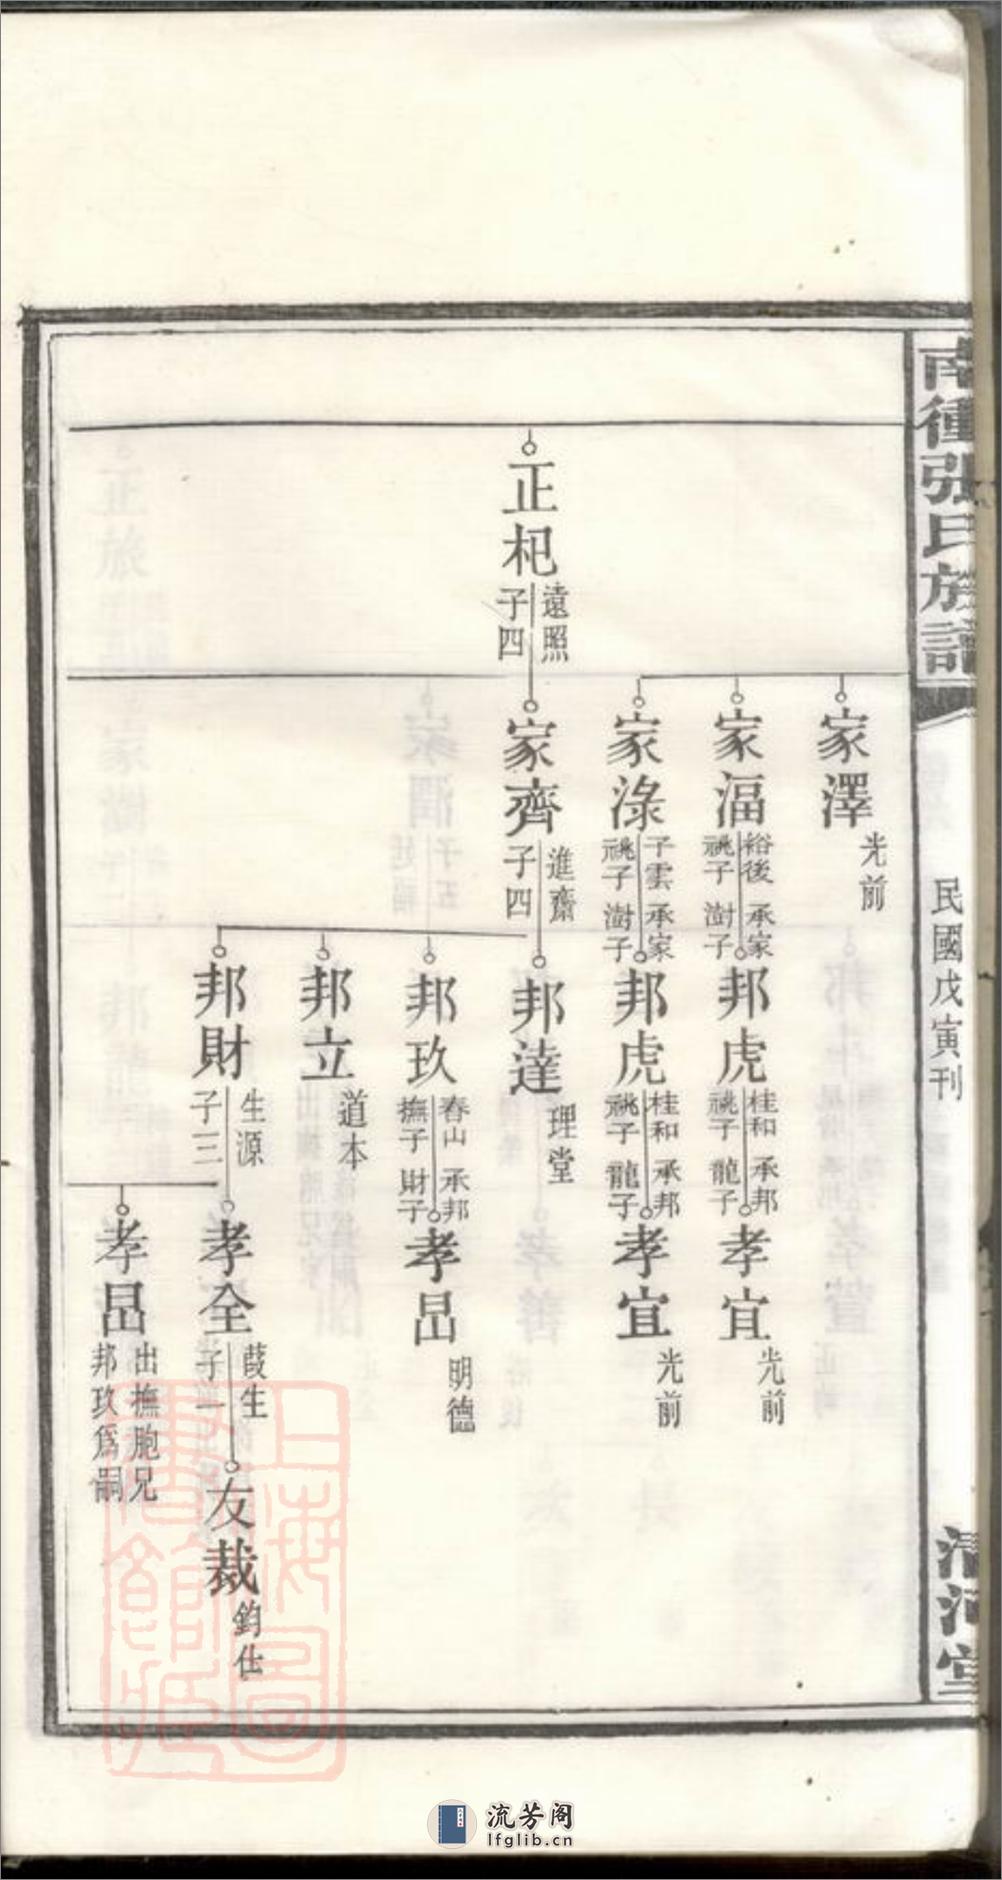 南衝張氏族譜
民國戊寅刊
清河堂
正杞
遠照
子四
家澤
光前
家湢
裕後 承家
祧子 澍子
邦虎
桂和 承邦
祧子 龍子
孝宜
光前
家淥
子雲 承家
祧子 澍子
邦虎
桂和 承邦
祧子 龍子
孝宜
光前
家齊
進齋
子四
邦達
理堂
邦玖
春山 承邦
撫子 財子
孝昌
明德
邦立
道本
邦財
生源
子三
孝全
葭生
子一
友裁
鈞仕
孝昌
出撫胞兄
邦玖爲嗣
上海圖
書館藏
流芳阁
lfglib.cn